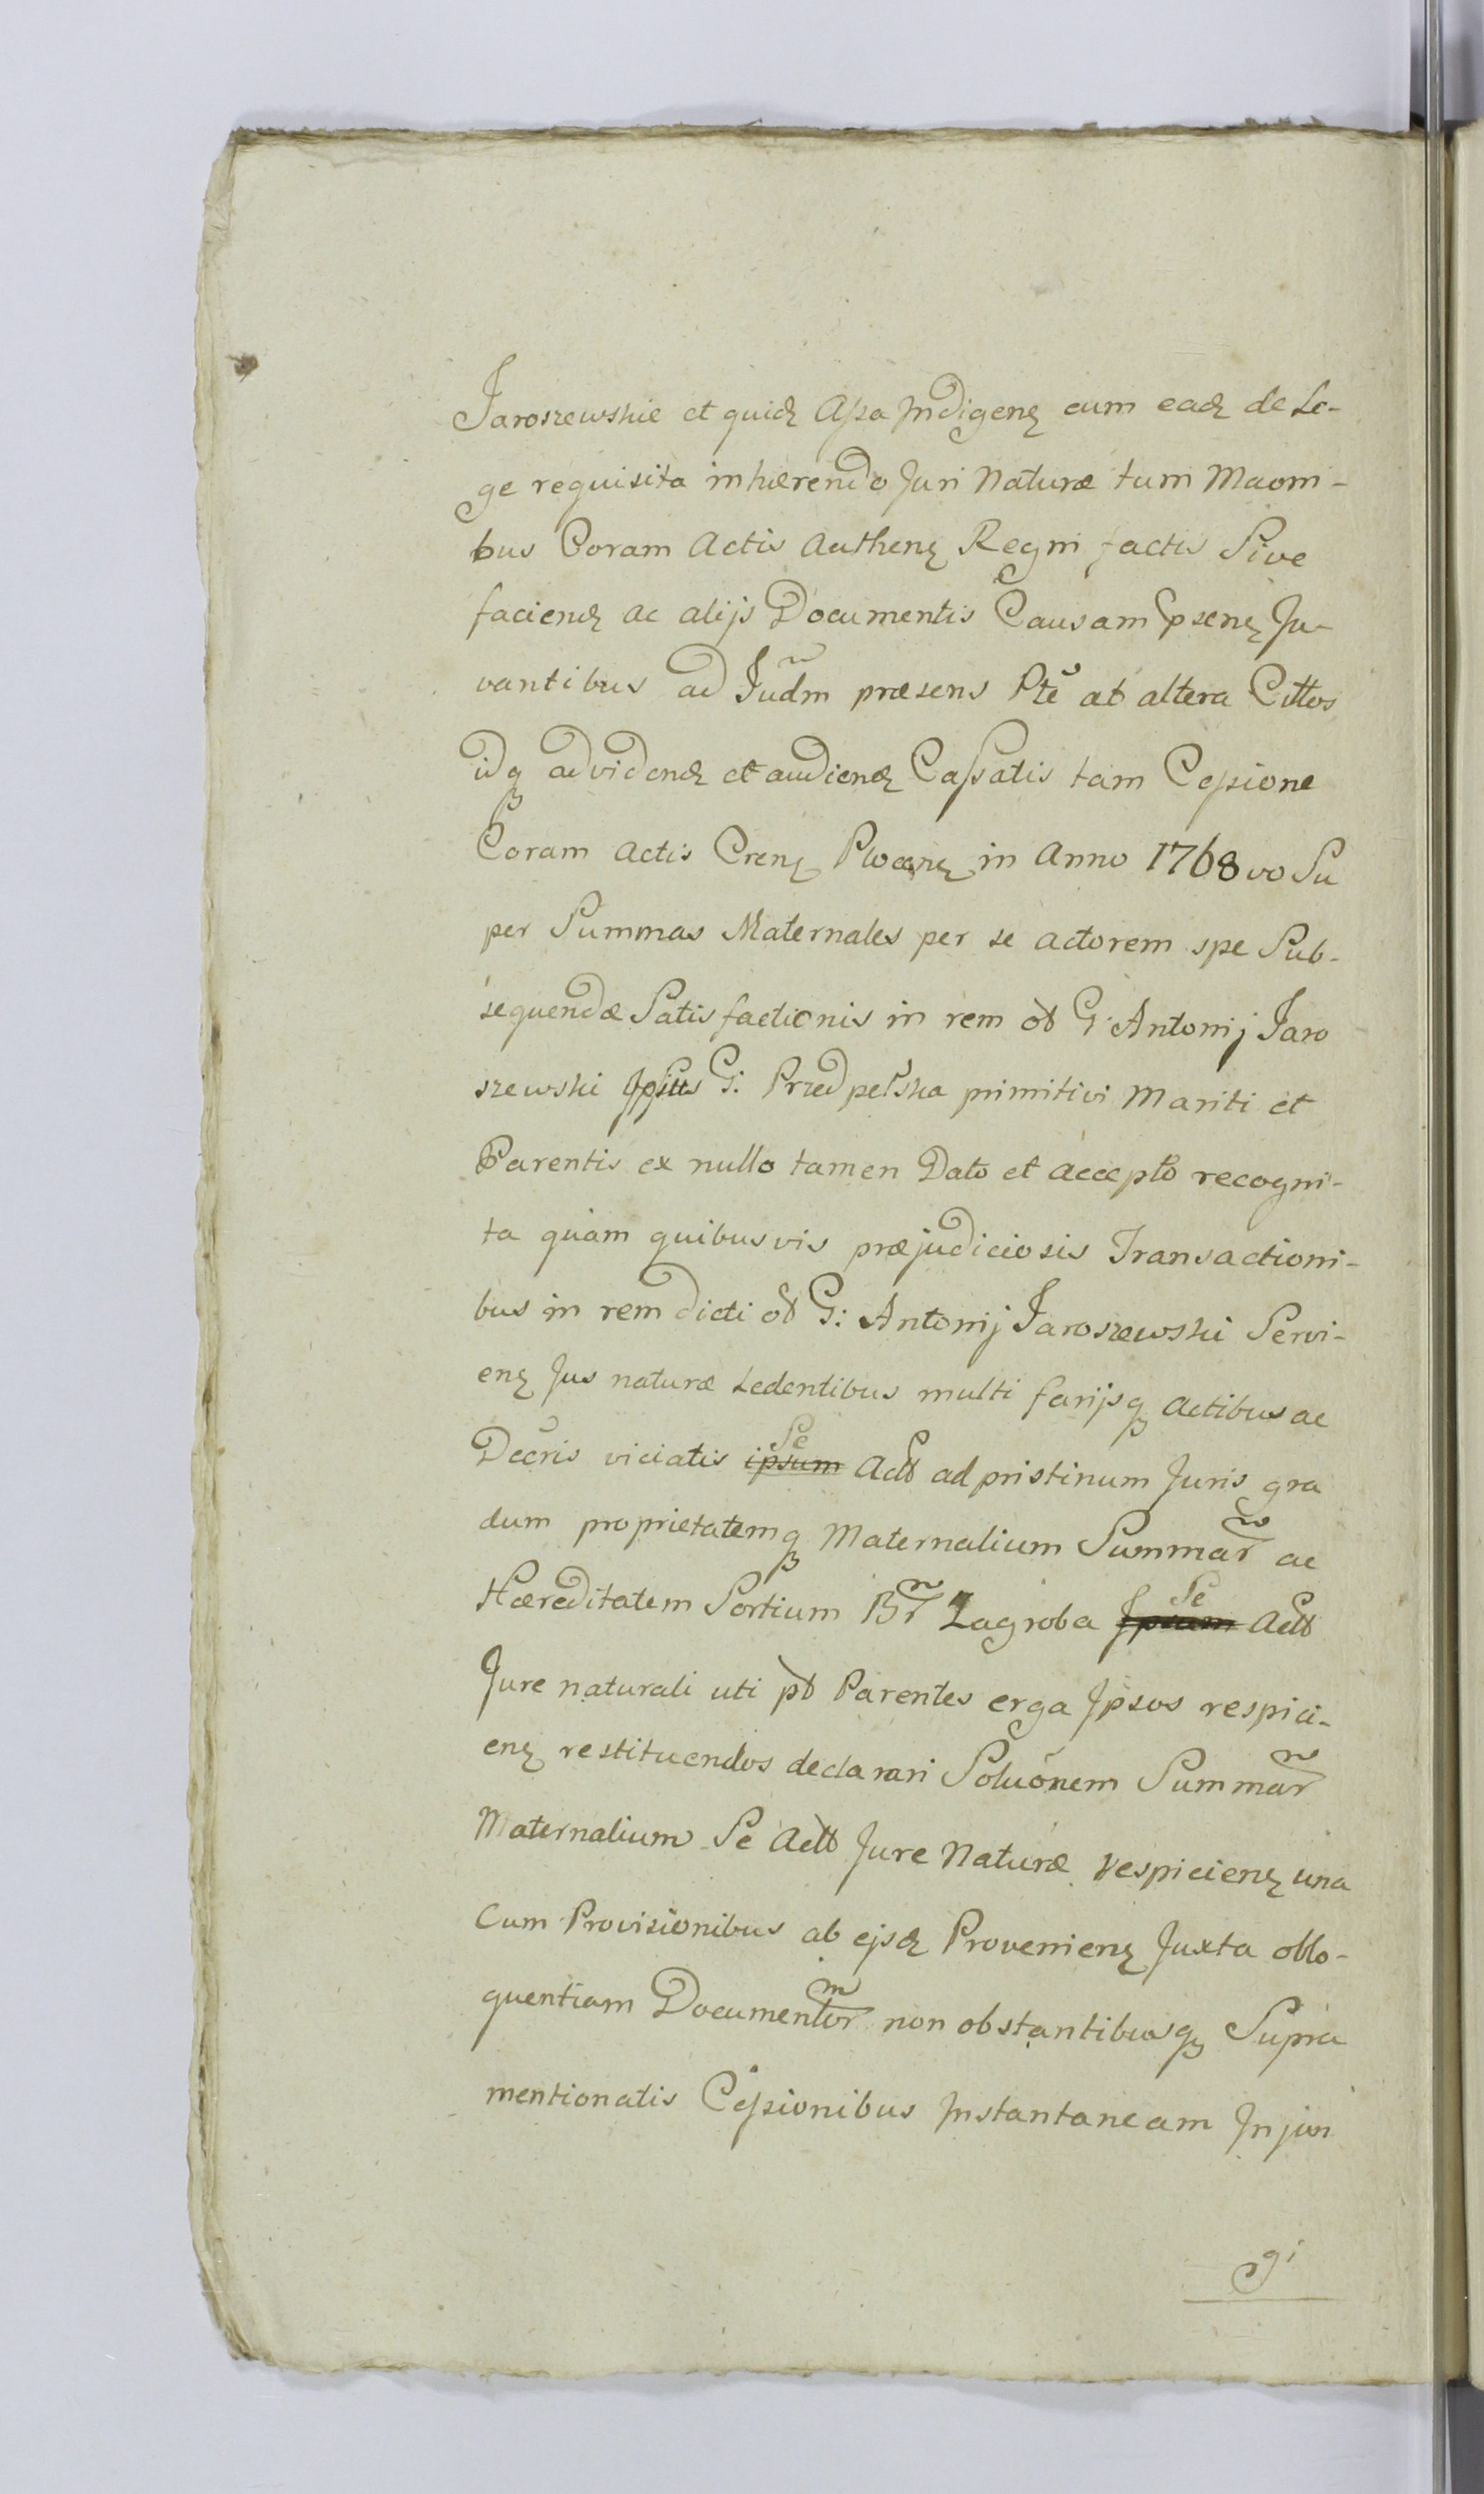 Jaroszewskie et quidȝ Assa Indigenȝ cum eadȝ de Le-
ge requisita inhærendo Juri Naturæ tum Maoni-
bus Coram Actis Authenȝ Regni factis Sive
faciendȝ ac alijs Documentis Causam pseneȝ Ju-
vantibus ad Judm præsens Pte ab altera Cittos
idq advidendȝ et audiendȝ Cassatis tam Cessione
Coram Actis Crenȝ Plocenȝ in Anno 1768vo Su
per Summas Maternales per se actorem spe Sub-
sequendæ Satisfactionis in rem ob G: Antonij Jaro
szewski Ipsius G: Przedpełska primitivi Mariti et
Parentis ex nullo tamen Dato et accepto recogni-
ta quam quibusvis præjudiciosis Transactioni-
bus in rem dicti ob G: Antonij Jaroszewski Servi-
enȝ Jus naturæ Ledentibus multi farijsq actibus ac
Decris viciatis ipsum Se Actt ad pristinum Juris gra
dum proprietatemq Maternalium Summar ac
Hæreditatem Sortium Br Zagroba Ipsum Se Actt
Jure naturali uti pt Parentes erga Ipsos respici-
enȝ restituendos declarari Soluonem Summar
Maternalium Se Actt Jure Naturæ respicienȝ una
Cum Provisionibus ab ejsdȝ Provenienȝ Juxta oblo-
quentiam Documentor non obstantibusq Supra
mentionatis Cessionibus Instantaneam Injun
gi